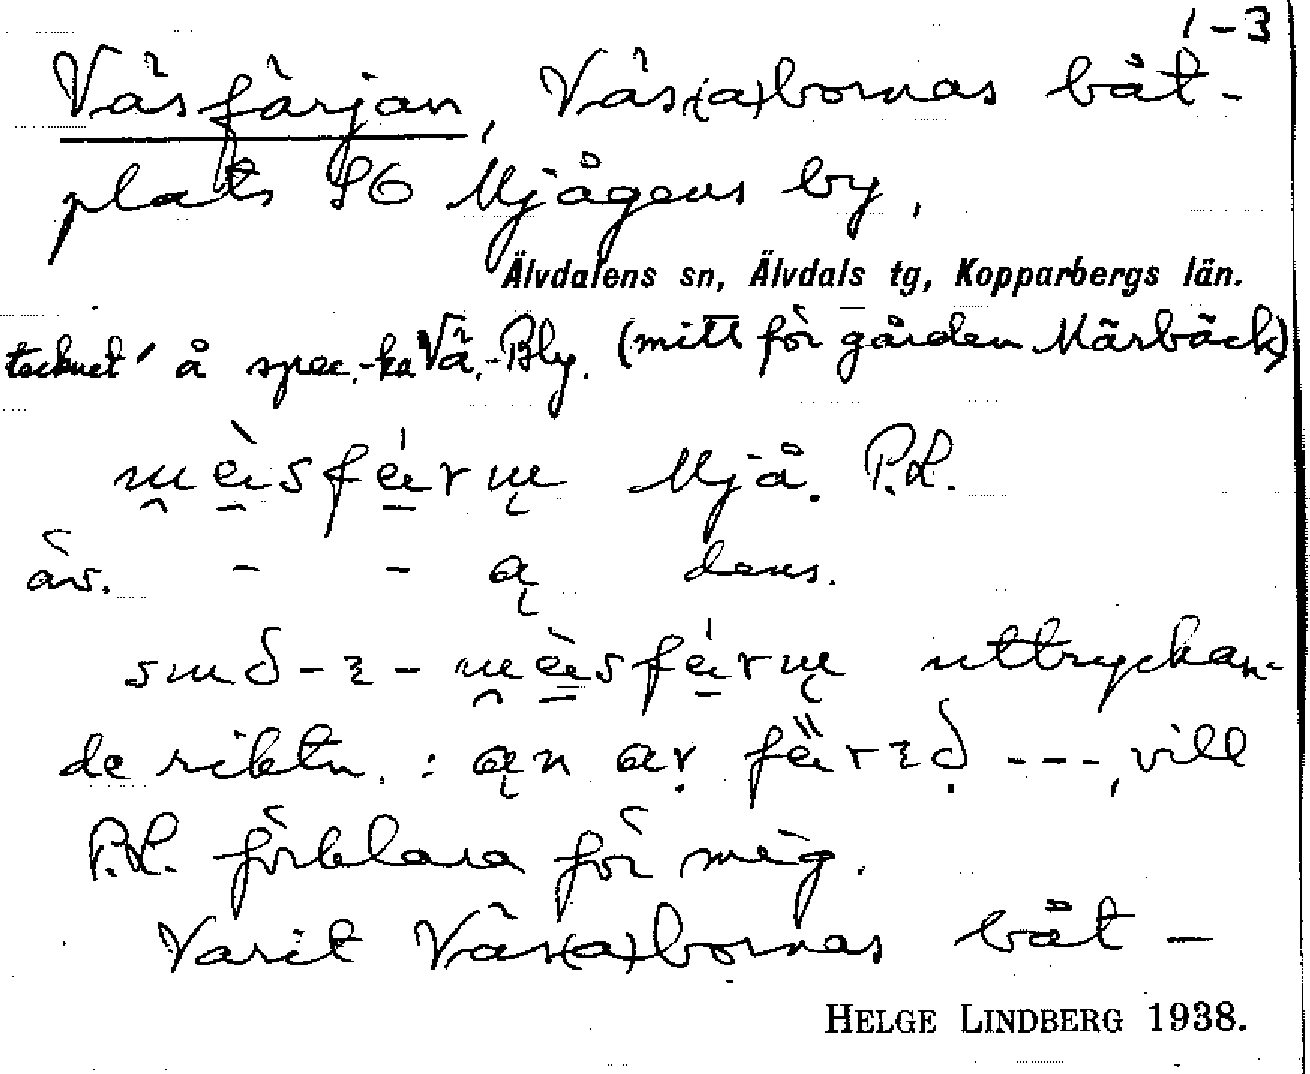 1-3
Väsfärjan, Väs(a)bornas båt-
plats SO Mjågens by,
Älvdalens sn, Älvdals tg, Kopparbergs län.
tecknet ' å spec.-ka Vä.-Bly. (mitt för gården Märbäck)
Mjå. P.L.
äv. - - dens.
uttryckan-
de riktn. : ---, vill
P.L. förklara för mig.
Varit Väs(a)bornas båt-
HELGE LINDBERG 1938.